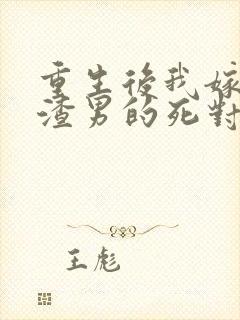 重生後我嫁
渣男的死對
王彪